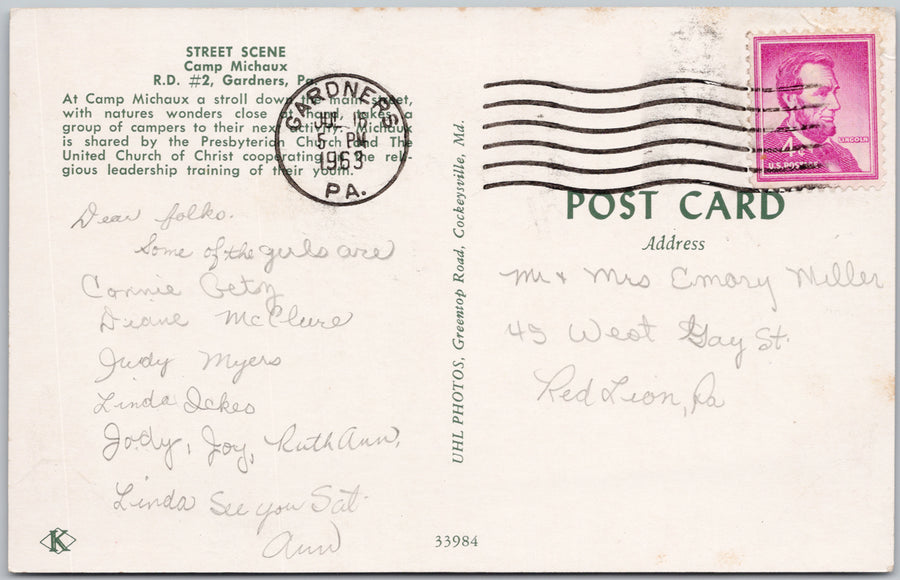 STREET SCENE
Camp Michaux
R.D. #2, Gardners, Pa.
At Camp Michaux a stroll down the main street,
with natures wonders close at hand, takes a
group of campers to their next activity. Michaux
is shared by the Presbyterian Church and The
United Church of Christ cooperating in the reli-
gious leadership training of their youth.
GARDNERS
JUL 18
5 PM
1963
PA.
LINCOLN
4¢
U.S. POSTAGE
POST CARD
Address
Dear folks.
Some of the girls are
Connie Getsy
Diane McClure
Judy Myers
Linda Ickes
Jody, Joy, RuthAnn,
Linda See you Sat.
Ann
Mr + Mrs Emory Miller
45 West Gay St.
Red Lion, Pa
UHL PHOTOS, Greentop Road, Cockeysville, Md.
K
33984